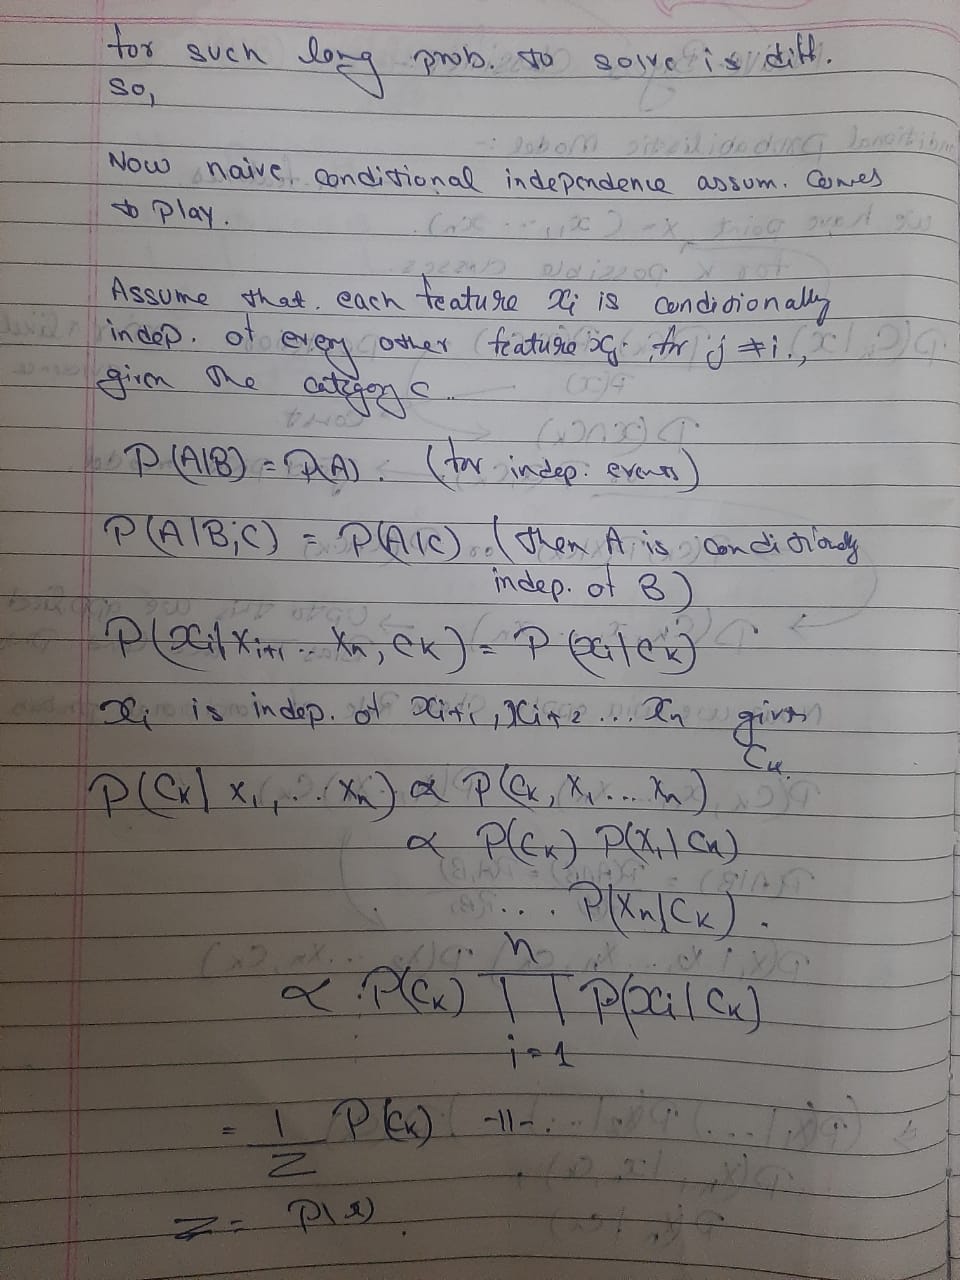 for such long prob. to solve is diff.
So,
Now naive conditional independence assum. comes
to play.
Assume that each feature xi is condidionally
indep. of every other feature xj for j ≠ i,
given the category c.
P(A|B) = P(A). (for indep. events)
P(A|B,C) = P(A|C) (then A is conditionally
indep. of B)
P(xi|xi+1 ... xn, Ck) = P(xi|Ck)
xi is indep. of xi+1, xi+2 ... xn given
Ck.
P(Ck| x1, ... xn) ∝ P(Ck, x1 ... xn)
∝ P(Ck) P(x1|Ck)
... P(xn|Ck).
n
∝ P(Ck) ∏ P(xi|Ck)
i=1
= 1/Z P(Ck) -||-.
Z = P(x).